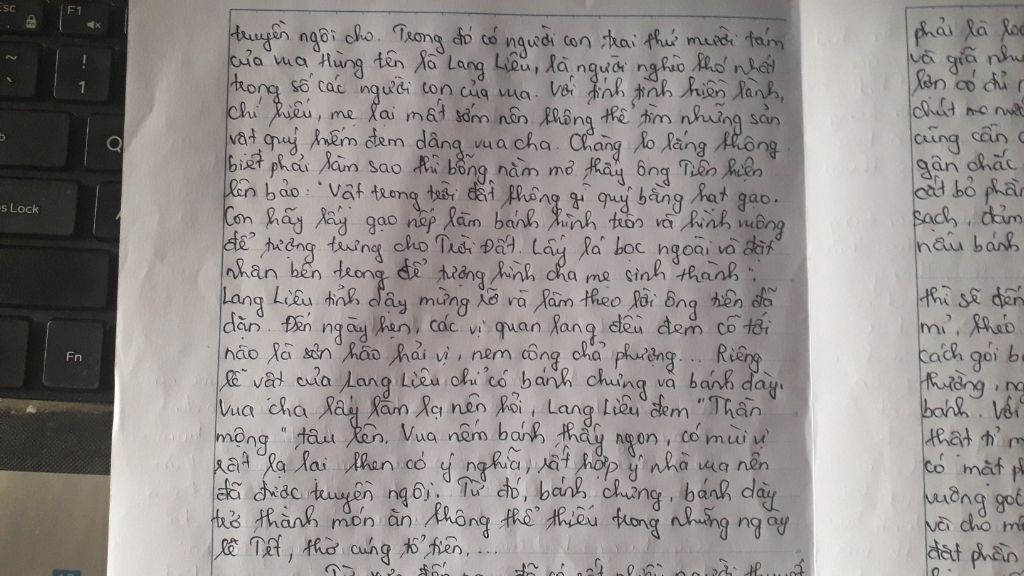 truyền ngôi cho. Trong đó có người con trai thứ mười tám
của vua Hùng tên là Lang Liêu, là người nghèo khó nhất
trong số các người con của vua. Với tính tình hiền lành,
chí hiếu, mẹ lại mất sớm nên không thể tìm những sản
vật quý hiếm đem dâng vua cha. Chàng lo lắng không
biết phải làm sao thì bỗng nằm mơ thấy ông Tiên hiện
lên bảo: "Vật trong trời đất không gì quý bằng hạt gạo.
Con hãy lấy gạo nếp làm bánh hình tròn và hình vuông
để tượng trưng cho Trời Đất. Lấy lá bọc ngoài và đặt
nhân bên trong để tượng hình cha mẹ sinh thành".
Lang Liêu tỉnh dậy mừng rỡ và làm theo lời ông tiên đã
dặn. Đến ngày hẹn, các vị quan lang đều đem cỗ tới
nào là sơn hào hải vị, nem công chả phượng... Riêng
lễ vật của Lang Liêu chỉ có bánh chưng và bánh dày.
Vua cha lấy làm lạ nên hỏi, Lang Liêu đem "Thần
mộng" tâu lên. Vua nếm bánh thấy ngon, có mùi vị
rất lạ lại khen có ý nghĩa, rất hợp ý nhà vua nên
đã được truyền ngôi. Từ đó, bánh chưng, bánh dày
trở thành món ăn không thể thiếu trong những ngày
lễ Tết, thờ cúng tổ tiên,...
phải là
và giã
lớn có
chút
cũng cần
gân
cắt bỏ phần
sạch,
nấu bánh
thì sẽ
mỉ, khéo
cách gói
thường,
bánh. Với
thật tỉ
có mặt
vuông góc
và cho
đặt phần
Esc
F1
~
!
1
Q
s Lock
Fn